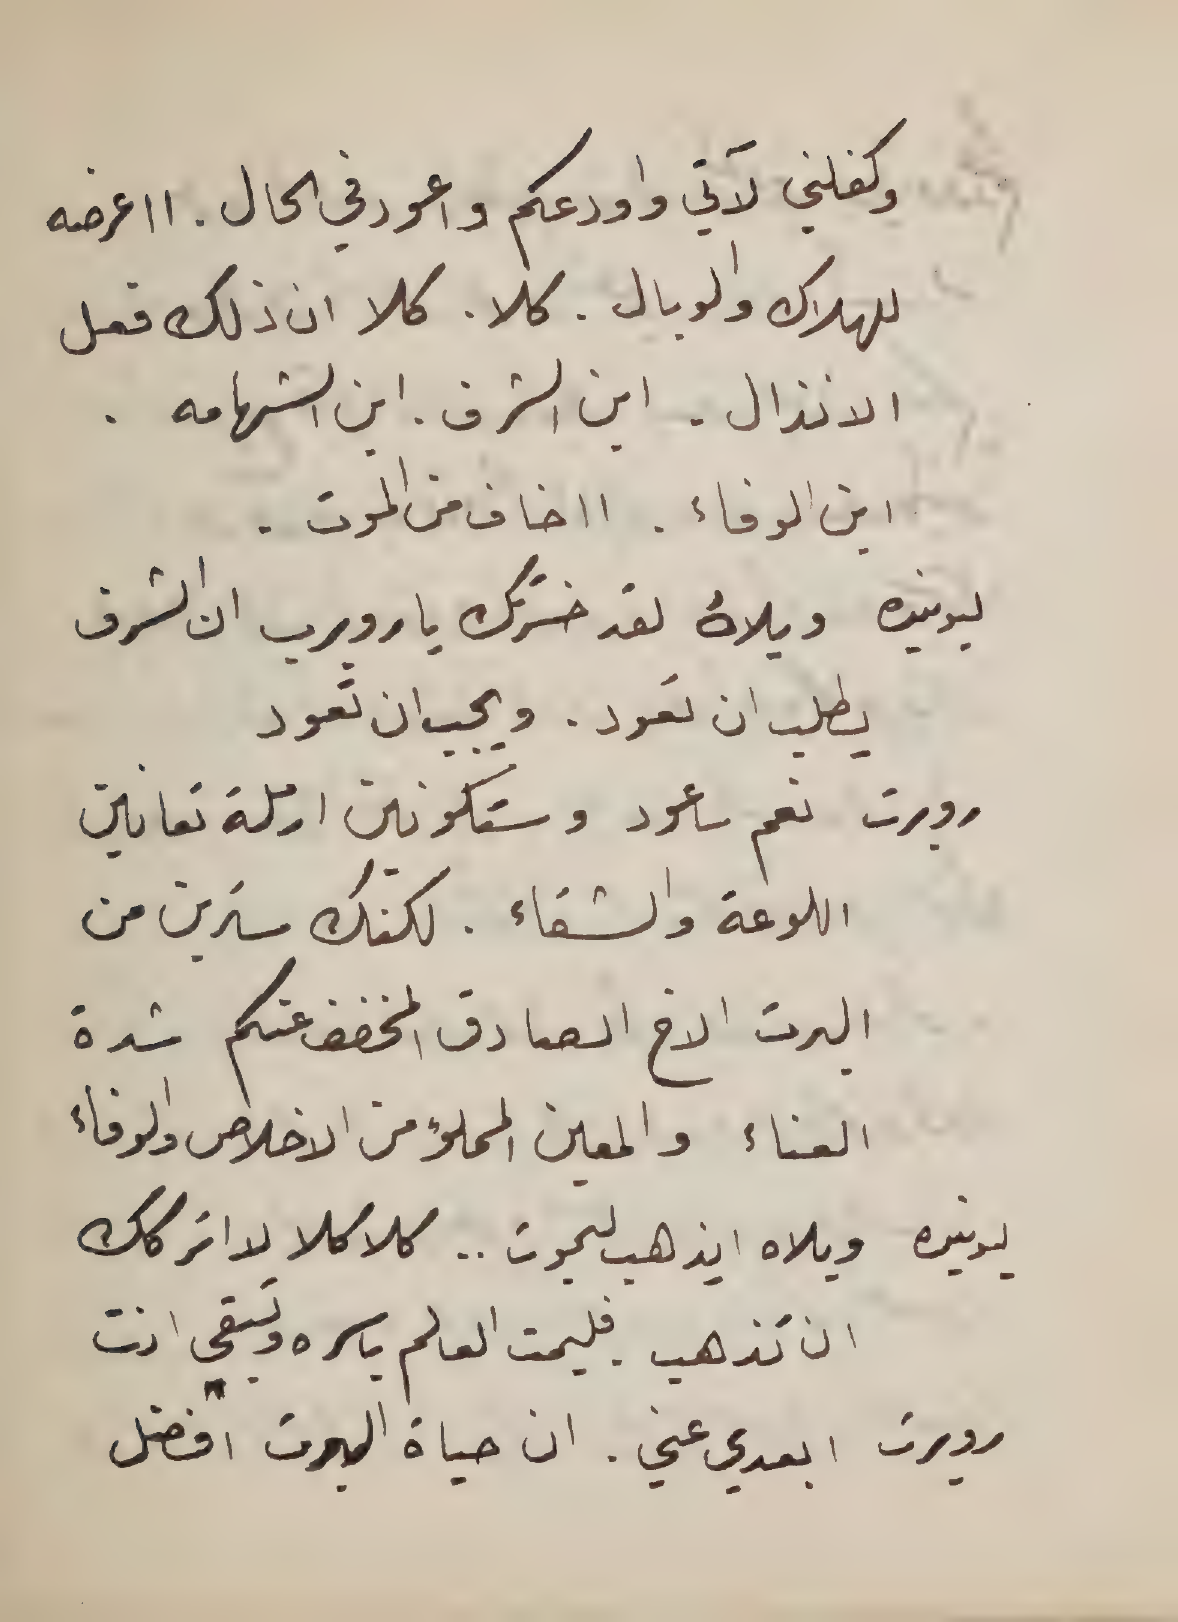 وكفلني لآتي واودعكم واعود في الحال . ااعرضه
للهلاك والوبال . كلا . كلا ان ذلك فعل
الانذال . اين الشرف . اين الشهامه .
اين الوفاء . ااخاف من الموت .
ليونيده ويلاهُ لقد خسرتك ياروبرت ان الشرف
يطلب ان تعود . ويجب ان تعود
روبرت نعم ساعود وستكونين ارملة تعانين
اللوعة والشقاء . لكنك سترين من
البرت الاخ الصادق المخفف عنكم شدة
العناء والمعين المملوء من الاخلاص والوفاء
ليونيده ويلاه ايذهب ليموت .. كلا كلا لا اتركك
ان تذهب . فليمت العالم باسره وتبقى انت
روبرت ابعدي عني . ان حياة البرت افضل